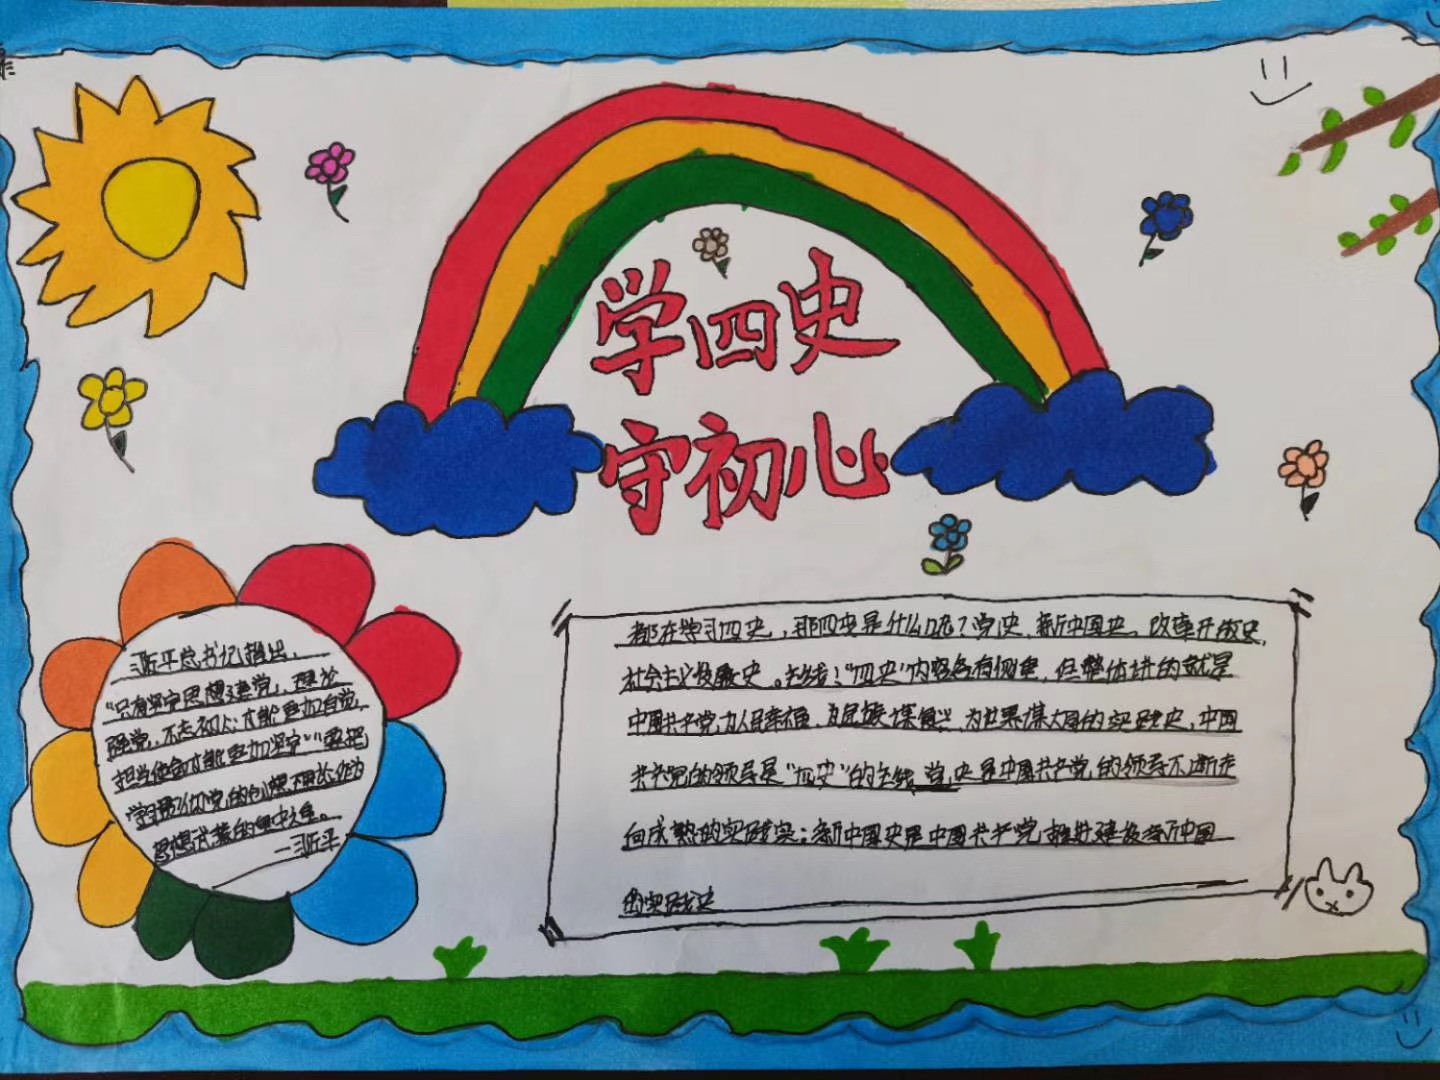 学四史
守初心
习近平总书记指出,
“只有坚定思想建党,理论
强党,不忘初心才能更加自觉,
担当使命才能更加坚定”要把
学习贯彻党的创新理论作为
思想武装的重中之重。
—习近平
都在学习四史,那四史是什么呢?党史、新中国史、改革开放史,
社会主义发展史。主线:“四史”内容各有侧重,但整体讲的就是
中国共产党为人民幸福、为民族谋复兴、为世界谋大同的实践史,中国
共产党的领导是“四史”的主线,党史是中国共产党的领导不断走
向成熟的实践史;新中国史是中国共产党推进建设新中国
的实践史